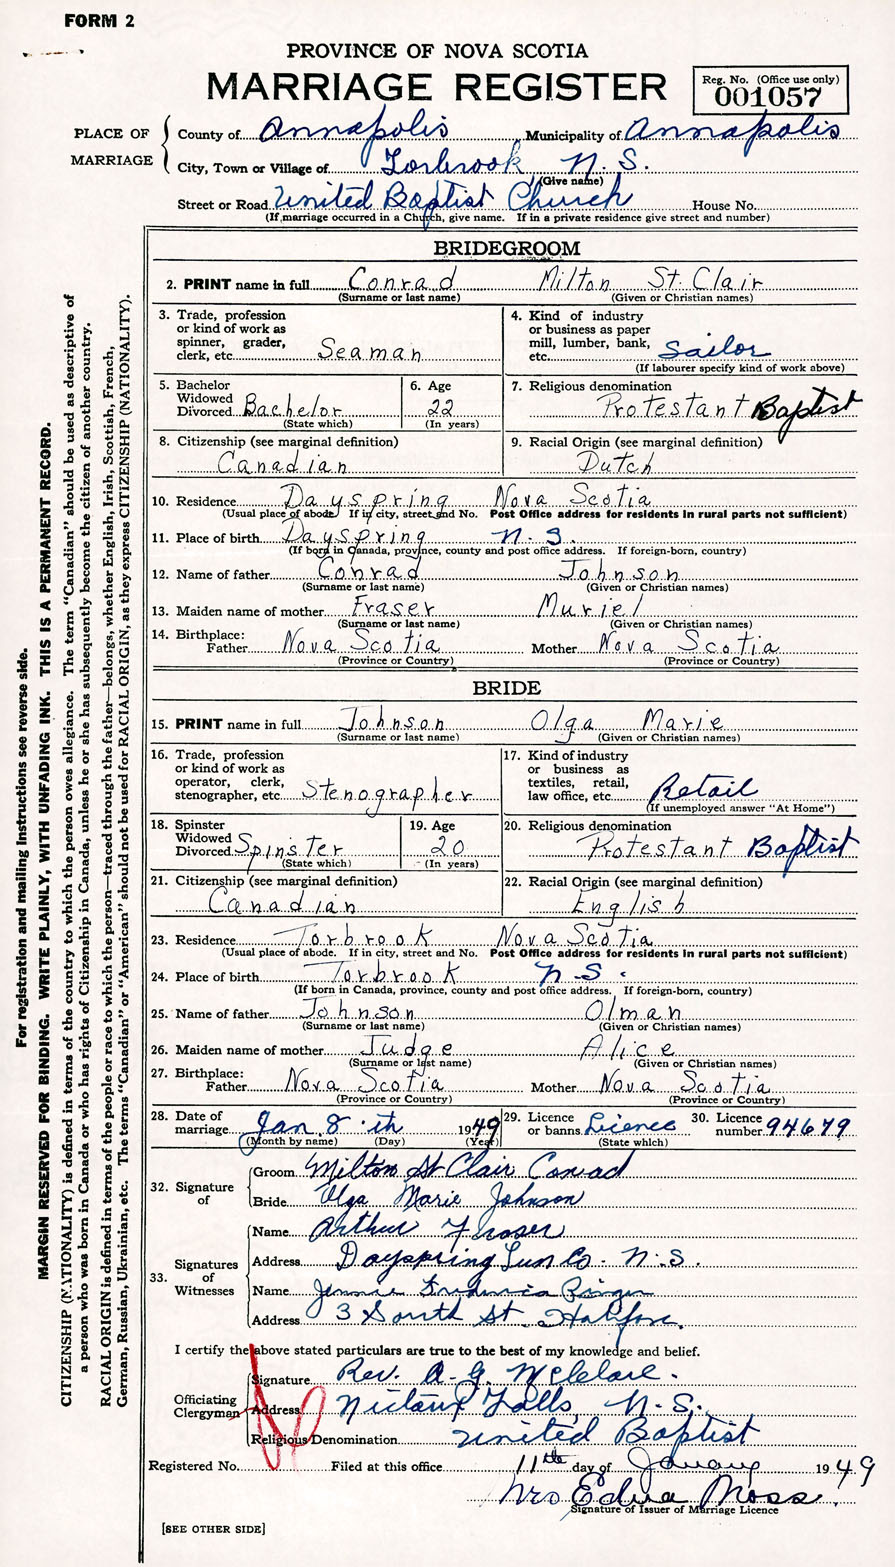 FORM 2
PROVINCE OF NOVA SCOTIA
MARRIAGE REGISTER
Reg. No. (Office use only)
001057
PLACE OF MARRIAGE
County of Annapolis Municipality of Annapolis
City, Town or Village of Torbrook N. S.
(Give name)
Street or Road United Baptist Church House No.
(If marriage occurred in a Church, give name. If in a private residence give street and number)
BRIDEGROOM
2. PRINT name in full Conrad Milton St. Clair
(Surname or last name) (Given or Christian names)
3. Trade, profession or kind of work as spinner, grader, clerk, etc. Seaman
4. Kind of industry or business as paper mill, lumber, bank, etc. Sailor
(If labourer specify kind of work above)
5. Bachelor Widowed Divorced Bachelor
(State which)
6. Age 22
(In years)
7. Religious denomination
Protestant Baptist
8. Citizenship (see marginal definition)
Canadian
9. Racial Origin (see marginal definition)
Dutch
10. Residence Dayspring Nova Scotia
(Usual place of abode. If in city, street and No. Post Office address for residents in rural parts not sufficient)
11. Place of birth Dayspring N. S.
(If born in Canada, province, county and post office address. If foreign-born, country)
12. Name of father Conrad Johnson
(Surname or last name) (Given or Christian names)
13. Maiden name of mother Fraser Muriel
(Surname or last name) (Given or Christian names)
14. Birthplace:
Father Nova Scotia Mother Nova Scotia
(Province or Country) (Province or Country)
BRIDE
15. PRINT name in full Johnson Olga Marie
(Surname or last name) (Given or Christian names)
16. Trade, profession or kind of work as operator, clerk, stenographer, etc. Stenographer
17. Kind of industry or business as textiles, retail, law office, etc. Retail
(If unemployed answer "At Home")
18. Spinster Widowed Divorced Spinster
(State which)
19. Age 20
(In years)
20. Religious denomination
Protestant Baptist
21. Citizenship (see marginal definition)
Canadian
22. Racial Origin (see marginal definition)
English
23. Residence Torbrook Nova Scotia
(Usual place of abode. If in city, street and No. Post Office address for residents in rural parts not sufficient)
24. Place of birth Torbrook N.S.
(If born in Canada, province, county and post office address. If foreign-born, country)
25. Name of father Johnson Olman
(Surname or last name) (Given or Christian names)
26. Maiden name of mother Judge Alice
(Surname or last name) (Given or Christian names)
27. Birthplace:
Father Nova Scotia Mother Nova Scotia
(Province or Country) (Province or Country)
28. Date of marriage Jan 8th 1949
(Month by name) (Day) (Year)
29. Licence or banns Licence
(State which)
30. Licence number 94679
32. Signature of
Groom Milton St Clair Conrad
Bride Olga Marie Johnson
33. Signatures of Witnesses
Name Arthur Fraser
Address Dayspring Lun Co. N.S.
Name Jennie
Address 3 South St. Halifax.
I certify the above stated particulars are true to the best of my knowledge and belief.
Officiating Clergyman
Signature Rev. A. G.
Address Nictaux Falls, N. S.
Religious Denomination United Baptist
Registered No. Filed at this office 11th day of January 1949
Mrs Edna Moss.
Signature of Issuer of Marriage Licence
[SEE OTHER SIDE]
For registration and mailing instructions see reverse side.
MARGIN RESERVED FOR BINDING. WRITE PLAINLY, WITH UNFADING INK. THIS IS A PERMANENT RECORD.
CITIZENSHIP (NATIONALITY) is defined in terms of the country to which the person owes allegiance. The term "Canadian" should be used as descriptive of
a person who was born in Canada or who has rights of Citizenship in Canada, unless he or she has subsequently become the citizen of another country.
RACIAL ORIGIN is defined in terms of the people or race to which the person—traced through the father—belongs, whether English, Irish, Scottish, French,
German, Russian, Ukrainian, etc. The terms "Canadian" or "American" should not be used for RACIAL ORIGIN, as they express CITIZENSHIP (NATIONALITY).